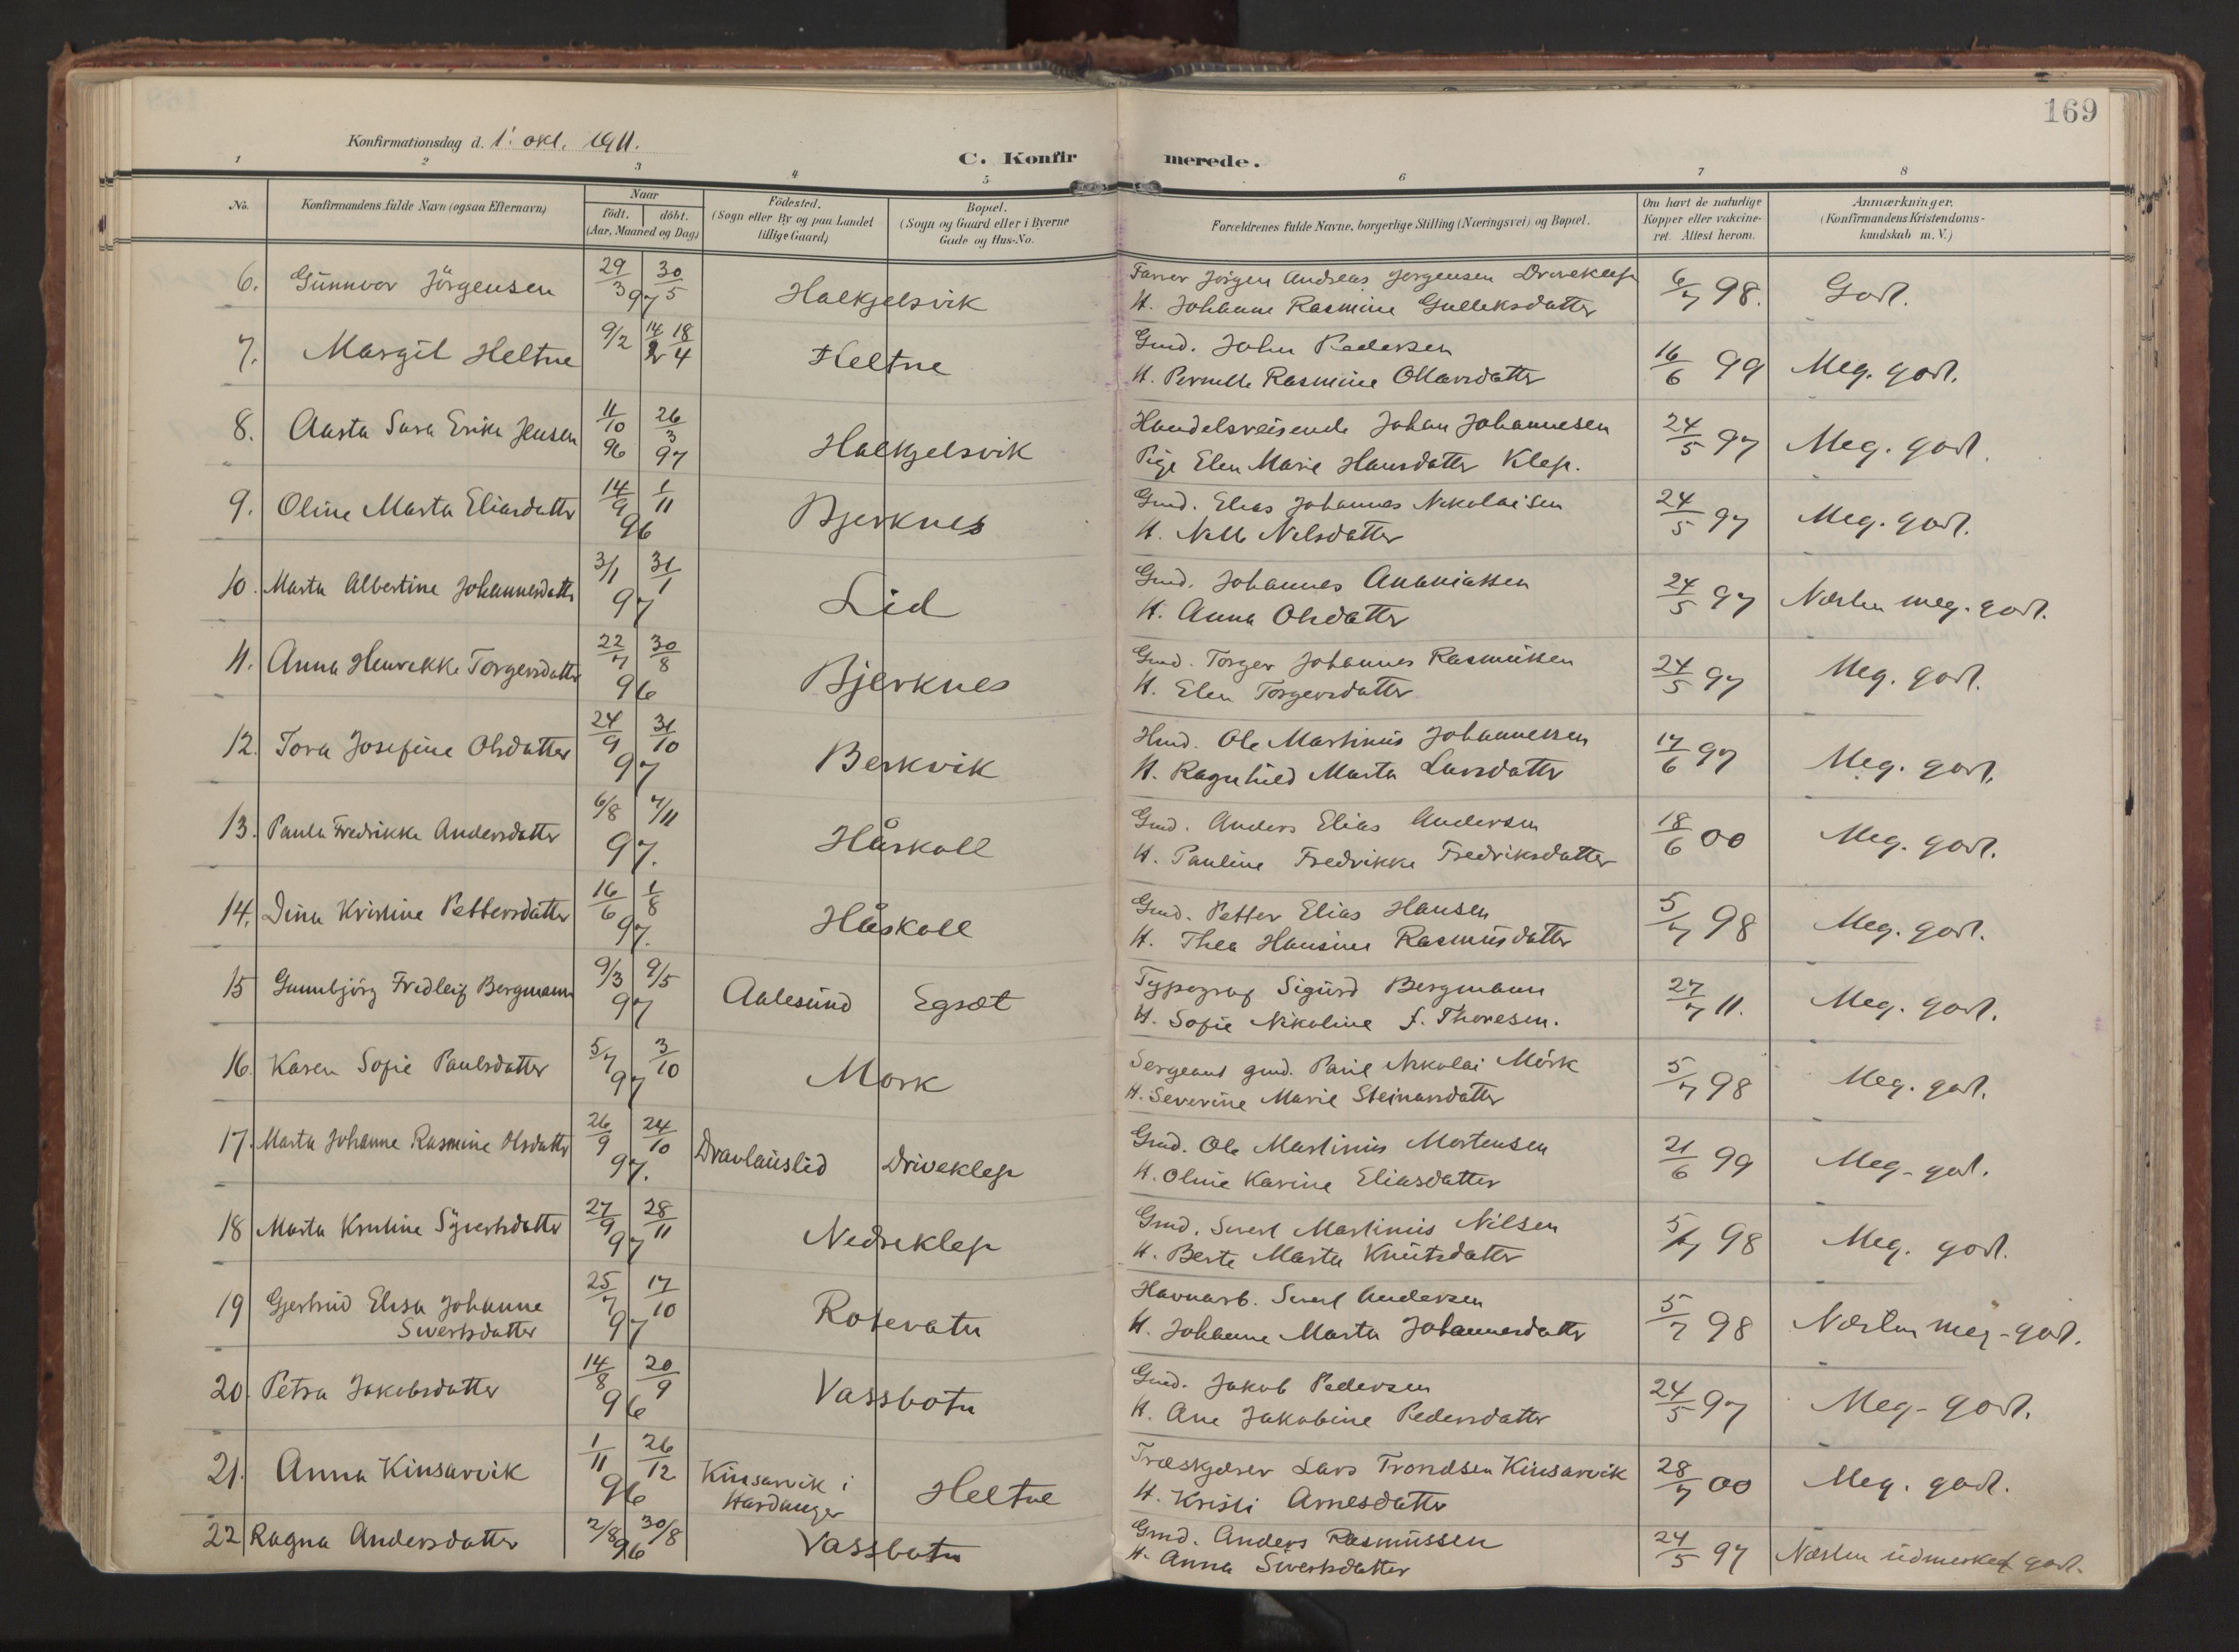 169
Konfirmationsdag d. 1' okt. 1911.
C. Konfirmerede.
1 2 3 4 5 6 7 8
No.
Konfirmandens fulde Navn (ogsaa Efternavn)
Naar
födt. döbt.
(Aar, Maaned og Dag)
Födested.
(Sogn eller By og paa Landet
tillige Gaard)
Bopæl.
(Sogn og Gaard eller i Byerne
Gade og Hus-No.
Forældrenes fulde Navne, borgerlige Stilling (Næringsvei) og Bopæl.
Om havt de naturlige
Kopper eller vakcine-
ret. Attest herom.
Anmærkninger.
(Konfirmandens Kristendoms-
kundskab m. V.)
6. Gunnvor Jörgensen 29/3 30/5 97 Halkjelsvik Farver Jörgen Andreas Jörgensen Driveklep 6/7 98. Godt.
H. Johanne Rasmine Gulleksdatter
7. Margit Heltne 9/2 18/4 Heltne Gmd. John Pedersen 16/6 99 Meg. godt.
H. Pernille Rasmine Ottarsdatter
8. Aasta Sara Erika Jensen 11/10 96 26/3 97 Halkjelsvik Handelsreisende Johan Johannesen 24/5 97 Meg. godt.
Pige Elen Marie Hansdatter Klep.
9. Oline Marta Eliasdatter 14/9 1/11 96 Bjerknes Gmd. Elias Johannes Nikolaisen 24/5 97 Meg. godt.
H. Nille Nilsdatter
10. Marta Albertine Johannesdatter 3/1 31/1 97 Lid Gmd. Johannes Ananiassen 24/5 97 Næsten meg. godt.
H. Anna Olsdatter
11. Anna Henrikke Torgersdatter 22/7 30/8 96 Bjerknes Gmd. Torger Johannes Rasmussen 24/5 97 Meg. godt.
H. Elen Torgersdatter
12. Tora Josefine Olsdatter 24/9 31/10 97 Berkvik Hmd. Ole Martinus Johannessen 17/6 97 Meg. godt.
H. Ragnhild Marta Larsdatter
13. Paula Fredrikke Andersdatter 6/8 7/11 97. Håskoll Gmd. Anders Elias Andersen 18/6 00 Meg. godt.
H. Pauline Fredrikke Fredriksdatter
14. Dina Kristine Pettersdatter 16/6 1/8 97. Håskoll Gmd. Petter Elias Hansen 5/7 98 Meg. godt.
H. Thea Hansine Rasmusdatter
15 Gunnbjörg Fredleif Bergmann 9/3 9/5 97 Aalesund Egsæt Typograf Sigurd Bergmann 27/7 11. Meg. godt.
H. Sofie Nikoline f. Thoresen.
16. Karen Sofie Paulsdatter 5/7 3/10 97 Mork Sergeant gmd. Paul Nikolai Mörk 5/7 98 Meg. godt.
H. Severine Marie Steinarsdatter
17. Marta Johanne Rasmine Olsdatter 26/9 24/10 97. Dravlauslid Driveklep Gmd. Ole Martinus Mortensen 21/6 99 Meg. godt.
H. Oline Karine Eliasdatter
18 Marta Kristine Syvertsdatter 27/9 28/11 97 Nedreklep Gmd. Sivert Martinus Nilsen 5/7 98 Meg. godt.
H. Berte Marta Knutsdatter
19 Gjertrud Elisa Johanne 25/7 17/10 97 Rotevatn Havnarb. Sivert Andersen 5/7 98 Næsten meg. godt.
Sivertsdatter H. Johanne Marta Johannesdatter
20. Petra Jakobsdatter 14/8 20/9 96 Vassbotn Gmd. Jakob Pedersen 24/5 97 Meg. godt.
H. Ane Jakobine Pedersdatter
21. Anna Kinsarvik 1/11 26/12 96 Kinsarvik i Heltne Træskjærer Lars Trondsen Kinsarvik 28/7 00 Meg. godt.
Hardanger H. Kristi Arnesdatter
22 Ragna Andersdatter 2/8 30/8 96 Vassbotn Gmd. Anders Rasmussen 24/5 97 Næsten udmerket godt.
H. Anna Sivertsdatter